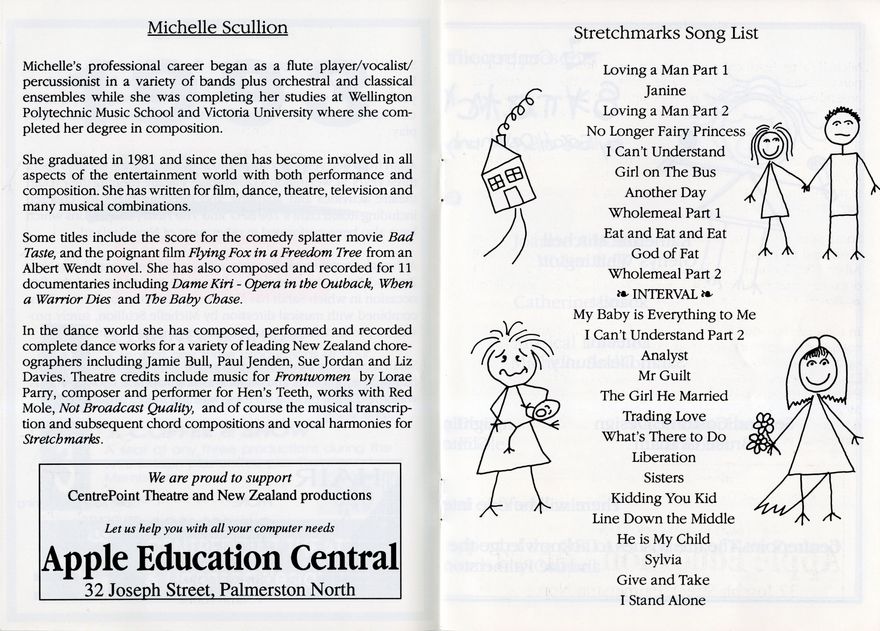 Michelle Scullion
Michelle's professional career began as a flute player/vocalist/
percussionist in a variety of bands plus orchestral and classical
ensembles while she was completing her studies at Wellington
Polytechnic Music School and Victoria University where she com-
pleted her degree in composition.
She graduated in 1981 and since then has become involved in all
aspects of the entertainment world with both performance and
composition. She has written for film, dance, theatre, television and
many musical combinations.
Some titles include the score for the comedy splatter movie Bad
Taste, and the poignant film Flying Fox in a Freedom Tree from an
Albert Wendt novel. She has also composed and recorded for 11
documentaries including Dame Kiri - Opera in the Outback, When
a Warrior Dies and The Baby Chase.
In the dance world she has composed, performed and recorded
complete dance works for a variety of leading New Zealand chore-
ographers including Jamie Bull, Paul Jenden, Sue Jordan and Liz
Davies. Theatre credits include music for Frontwomen by Lorae
Parry, composer and performer for Hen's Teeth, works with Red
Mole, Not Broadcast Quality, and of course the musical transcrip-
tion and subsequent chord compositions and vocal harmonies for
Stretchmarks.
We are proud to support
CentrePoint Theatre and New Zealand productions
Let us help you with all your computer needs
Apple Education Central
32 Joseph Street, Palmerston North
Stretchmarks Song List
Loving a Man Part 1
Janine
Loving a Man Part 2
No Longer Fairy Princess
I Can't Understand
Girl on The Bus
Another Day
Wholemeal Part 1
Eat and Eat and Eat
God of Fat
Wholemeal Part 2
❧ INTERVAL ❧
My Baby is Everything to Me
I Can't Understand Part 2
Analyst
Mr Guilt
The Girl He Married
Trading Love
What's There to Do
Liberation
Sisters
Kidding You Kid
Line Down the Middle
He is My Child
Sylvia
Give and Take
I Stand Alone